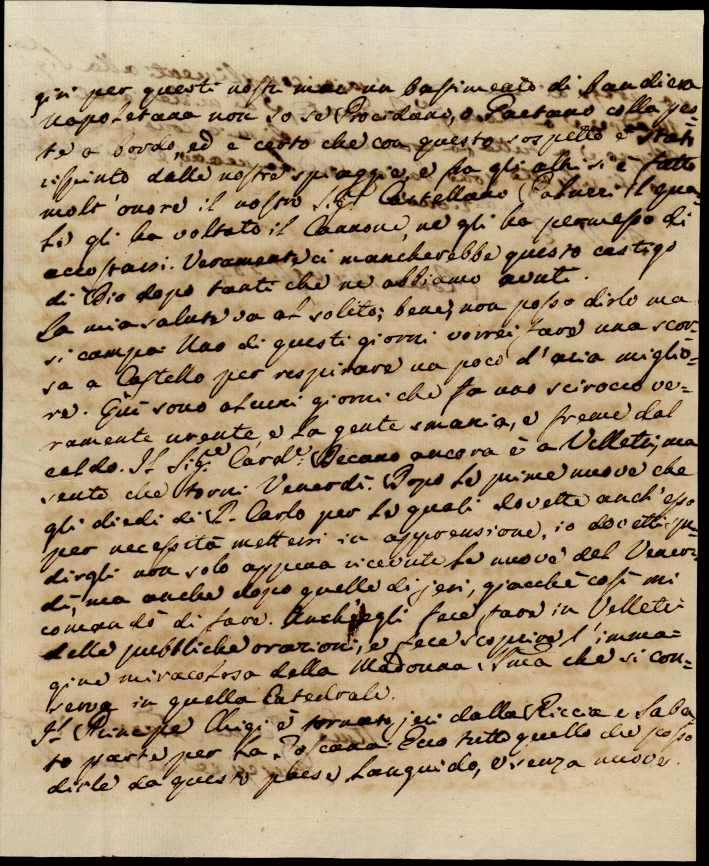 giri per questi nostri mari un bastimento di bandiera
napoletana non so se Procidano, o Gaetano colla pes=
te a bordo, ed è certo che con questo sospetto è stato
respinto dalle nostre spiaggie, e fra gli altri si è fatto
molt'onore il nostro Sig.r Castellano il qua=
le gli ha voltato il Cannone, ne gli ha permesso di
accostarsi. Veramente ci mancherebbe questo castigo
di Dio dopo tanti che ne abbiamo avuti.
La mia salute va al solito; bene, non posso dirlo ma
si campa. Uno di questi giorni vorrei fare una scor=
sa a Castello per respirare un poco d'aria miglio=
re. Qui sono alcuni giorni che fa uno scirocco ve=
ramente urente, e la gente smania, e freme dal
caldo. Il Sig.e Card.e Decano ancora è a Velletri, ma
sento che torni Venerdì. Dopo le prime nuove che
gli diedi di P. Carlo per le quali dovette anch'esso
per necessità mettersi in apprensione, io dovetti
dirgli non solo appena ricevute le nuove del Vener=
dì, ma anche dopo quelle di jeri, giacchè così mi
comandò di fare. Anch'egli fece fare in Velletri
delle pubbliche orazioni, e fece scoprire l'imma=
gine miracolosa della Madonna SSma che si con=
serva in quella Catedrale.
Il Principe Chigi è tornato jeri dalla Riccia e Saba=
to parte per la Toscana. Ecco tutto quello che posso
dirle da questo paese languido, e senza nuove.